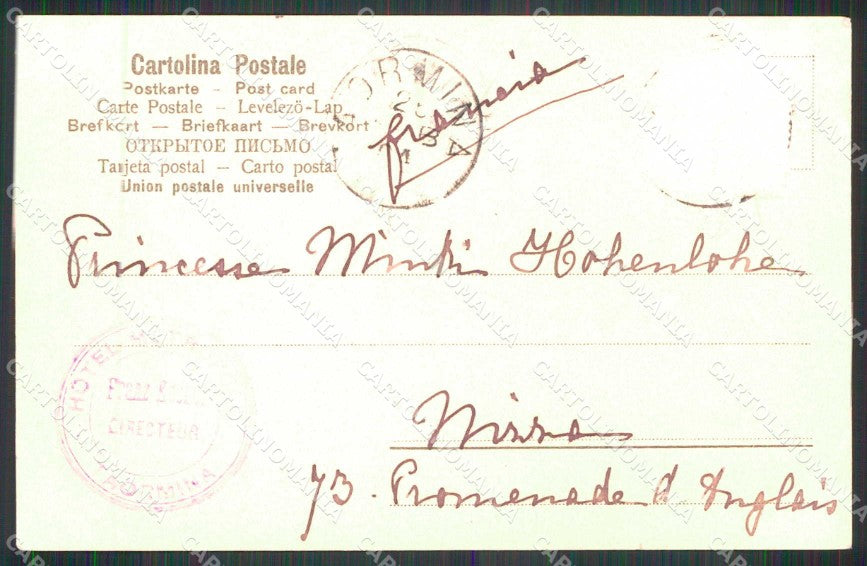 Cartolina Postale
Postkarte - Post card
Carte Postale - Levelező-Lap
Brefkort - Briefkaart - Brevkort
ОТКРЫТОЕ ПИСЬМО
Tarjeta postal - Carto postal
Union postale universelle
TAORMINA
francia
Princesse Minki Hohenlohe
HOTEL
DIRECTEUR
TAORMINA
Nizza
73. Promenade d. Anglais
CARTOLINOMANIA